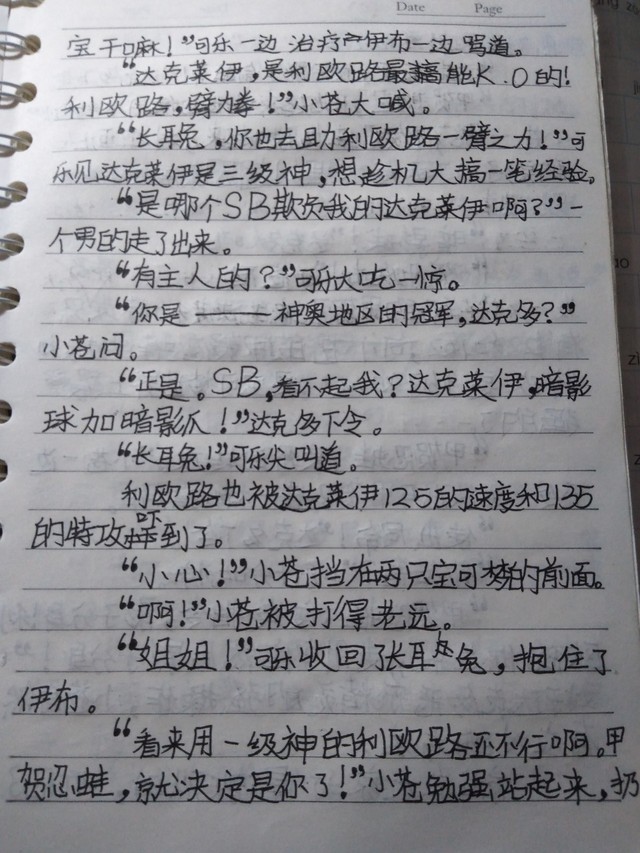 Date Page
宝干嘛！”可乐一边 治疗伊布一边骂道。
“达克莱伊，是利欧路最搞能K.O的！
利欧路，臂力拳！”小苍大喊。
“长耳兔，你也去助利欧路一臂之力！”可
乐见达克莱伊是三级神，想趁机大搞一笔经验。
“是哪个SB欺负我的达克莱伊啊？”一
个男的走了出来。
“有主人的？”可乐大吃一惊。
“你是 神奥地区的冠军，达克多？”
小苍问。
“正是。SB，看不起我？达克莱伊，暗影
球加暗影爪！”达克多下令。
“长耳兔！”可乐尖叫道。
利欧路也被达克莱伊125的速度和135
的特攻吓到了。
“小心！”小苍挡在两只宝可梦的前面。
“啊！”小苍被打得老远。
“姐姐！”可乐收回了长耳兔，抱住了
伊布。
“看来用一级神的利欧路还不行啊。甲
贺忍蛙，就决定是你了！”小苍勉强站起来，扔